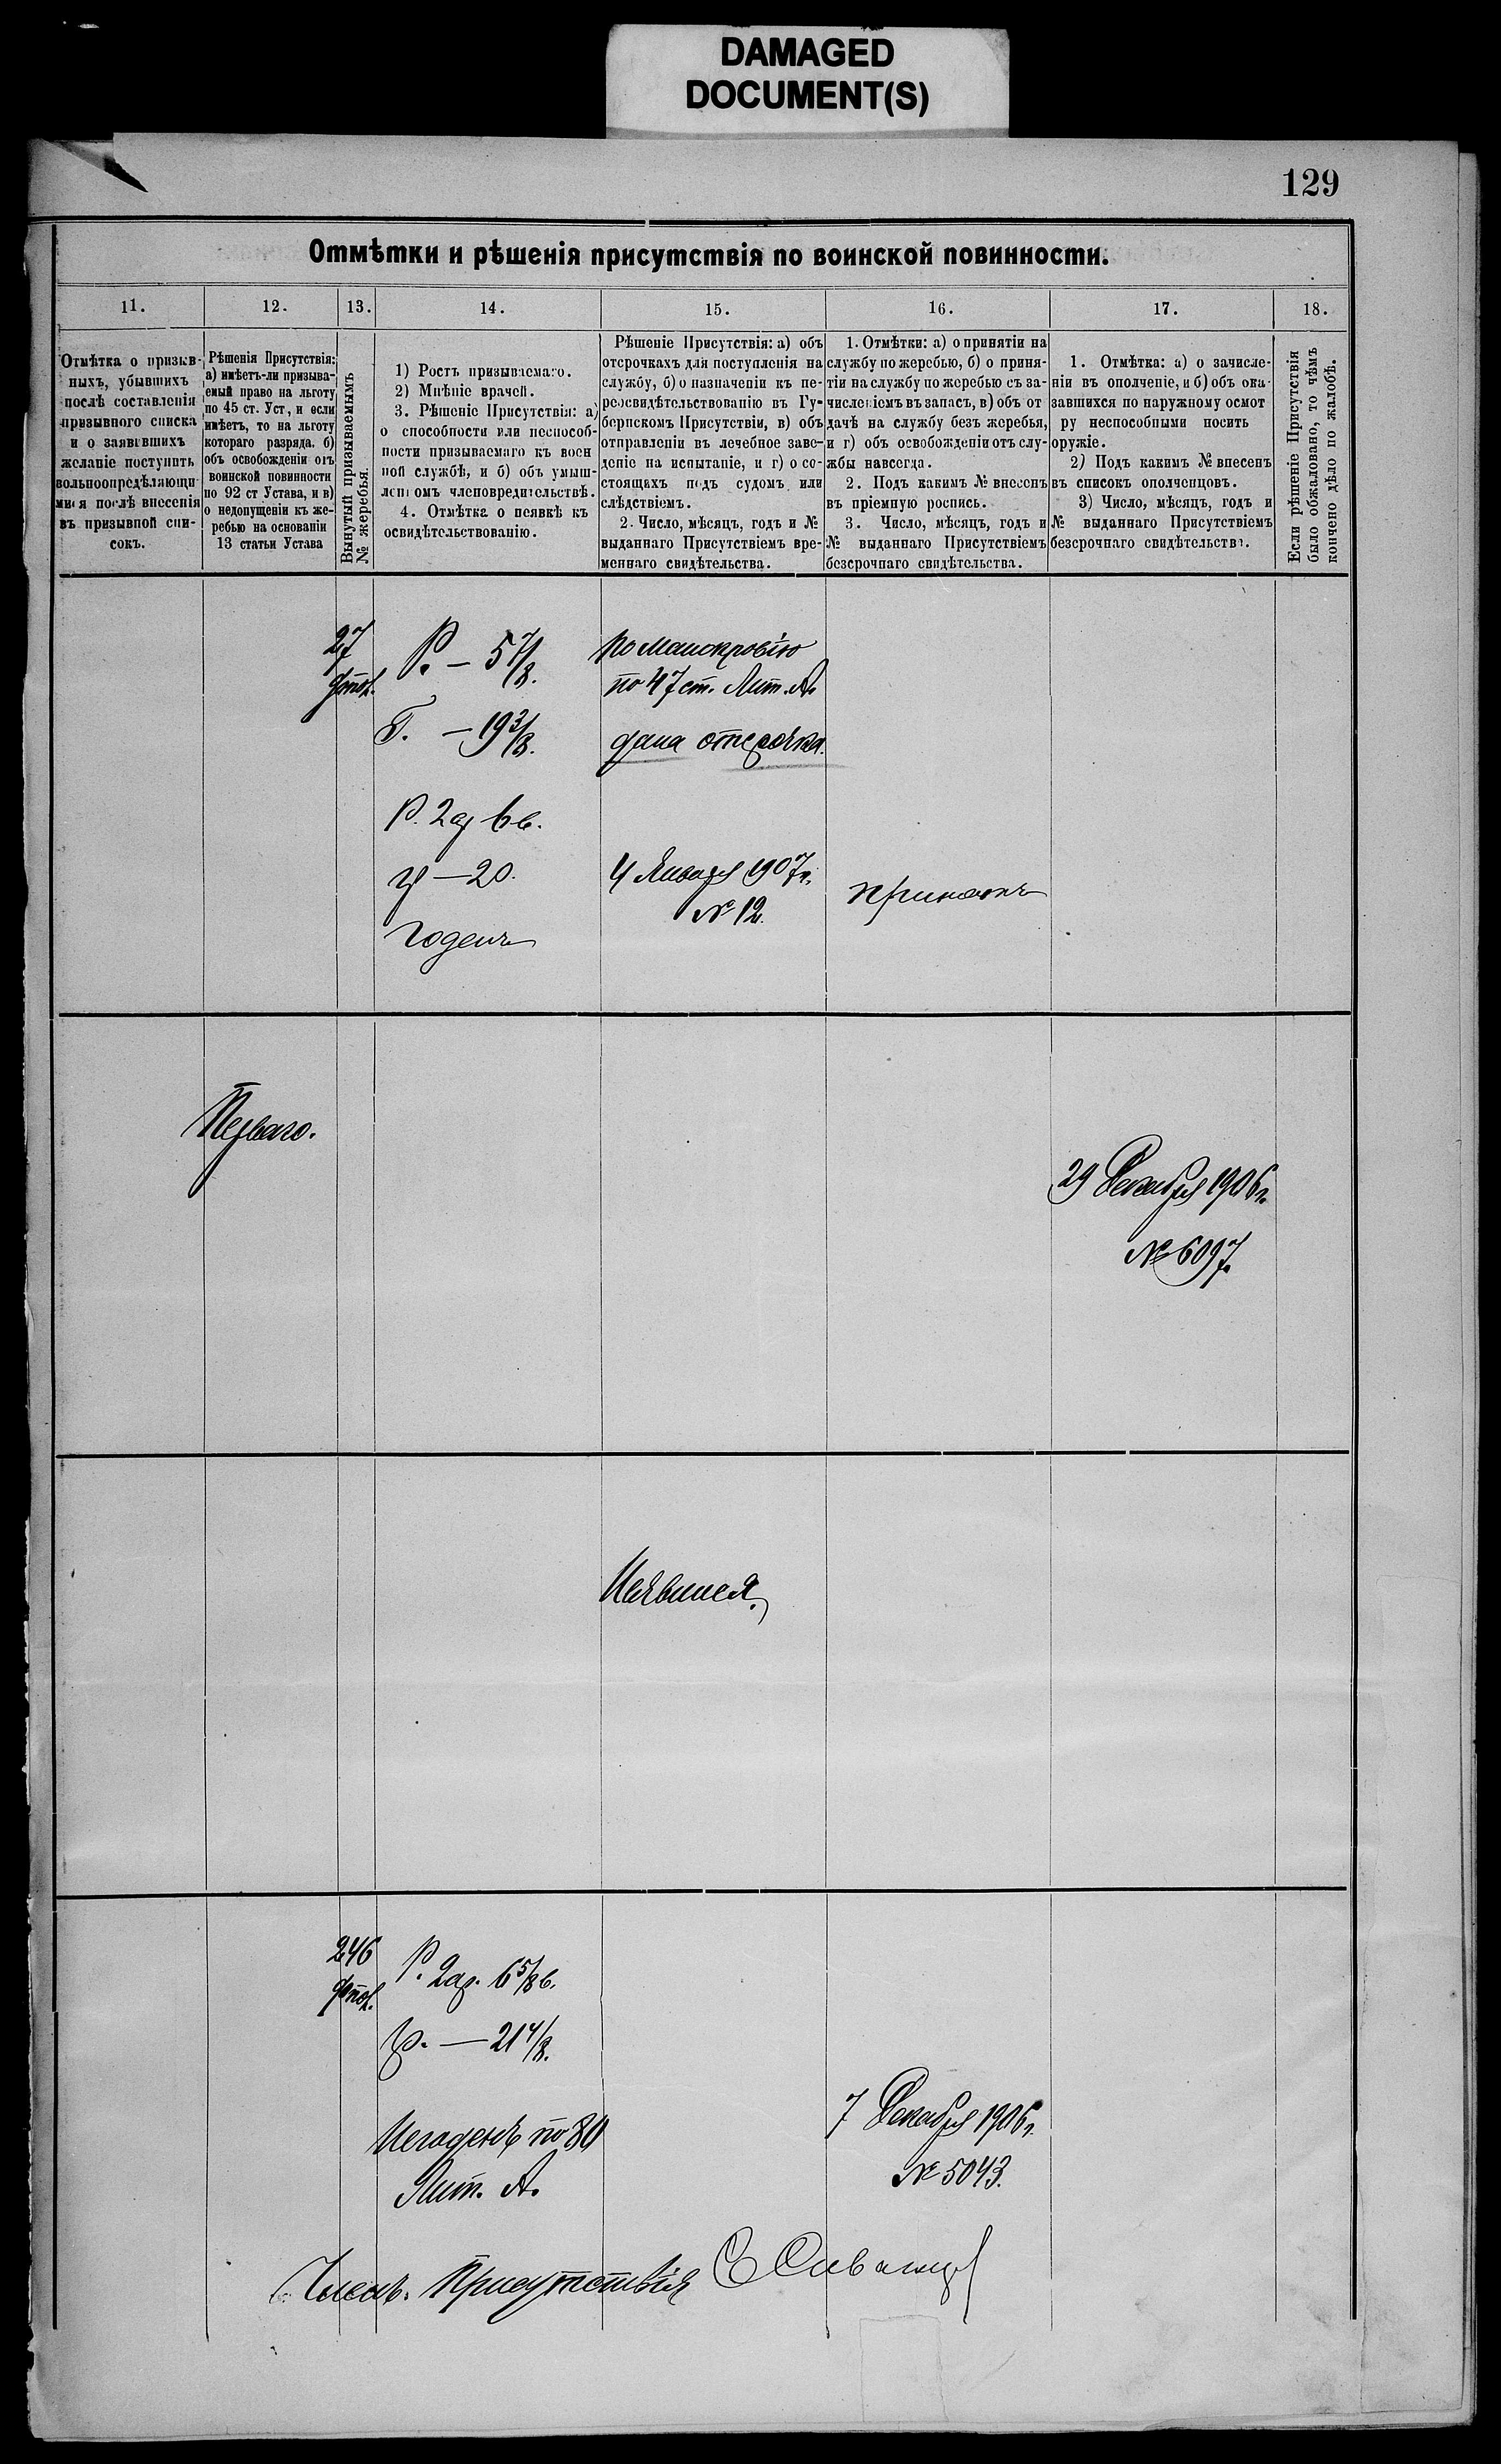 DAMAGED
DOCUMENT(S)
129
Отмѣтки и рѣшенія присутствія по воинской повинности.
11.
12.
13.
14.
15.
16.
17.
18.
Отмѣтка о призыв-
ныхъ, убывшихъ
послѣ составленія
призывного списка
и о заявившихъ
желаніе поступить
вольноопредѣляющи-
мися послѣ внесенія
въ призывной спи-
сокъ.
Рѣшенія Присутствія:
а) имѣетъ-ли призыва-
емый право на льготу
по 45 ст. Уст, и если
имѣетъ, то на льготу
котораго разряда. б)
объ освобожденіи отъ
воинской повинности
по 92 ст Устава, и в)
о недопущеніи къ же-
ребью на основаніи
13 статьи Устава
Вынутый призываемымъ
№ жеребья.
1) Ростъ призываемаго.
2) Мнѣніе врачей.
3. Рѣшеніе Присутствія: а)
о способности или неспособ-
ности призываемаго къ воен
ной службѣ, и б) объ умыш-
ленномъ членовредительствѣ.
4. Отмѣтка о неявкѣ къ
освидѣтельствованію.
Рѣшеніе Присутствія: а) объ
отсрочкахъ для поступленія на
службу, б) о назначеніи къ пе-
реосвидѣтельствованію въ Гу-
бернскомъ Присутствіи, в) объ
отправленіи въ лечебное заве-
деніе на испытаніе, и г) о со-
стоящихъ подъ судомъ или
слѣдствіемъ.
2. Число, мѣсяцъ, годъ и №
выданнаго Присутствіемъ вре-
меннаго свидѣтельства.
1. Отмѣтки: а) о принятіи на
службу по жеребью, б) о приня-
тіи на службу по жеребью съ за-
численіемъ въ запасъ, в) объ от
дачѣ на службу безъ жеребья,
и г) объ освобожденіи отъ слу-
жбы навсегда.
2. Подъ какимъ № внесенъ
въ пріемную роспись.
3. Число, мѣсяцъ, годъ и
№ выданнаго Присутствіемъ
безсрочнаго свидѣтельства.
1. Отмѣтка: а) о зачисле-
ніи въ ополченіе, и б) объ ока-
завшихся по наружному осмот
ру неспособными носить
оружіе.
2) Подъ какимъ № внесенъ
въ списокъ ополченцовъ.
3) Число, мѣсяцъ, годъ и
№ выданнаго Присутствіемъ
безсрочнаго свидѣтельства.
Если рѣшеніе Присутствія
было обжаловано, то чѣмъ
кончено дѣло по жалобѣ.
27
Р. — 5 7/8.
Г. — 19 3/8.
Р. 2 ар 6 в.
— 20.
Годенъ
По малокровію
по 47 ст. Лит. А.
дана отсрочка.
4 Января 1907 г.
№ 12.
принятъ
Перваго.
29 Декабря 1906 г.
№ 6097.
Неявился.
246
Р. 2 ар. 6 5/8 в.
— 21 4/8.
Негоденъ по 80
Лит. А.
7 Декабря 1906 г.
№ 5043.
Членъ Присутствія